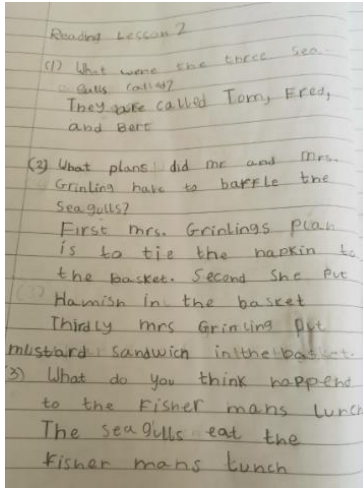 Reading Lesson 2
(1) What were the three sea
gulls called?
They are called Tom, Fred,
and Bert
(2) What plans did mr and mrs.
Grinling have to baffle the
Seagulls?
First mrs. Grinlings plan
is to tie the napkin to
the basket. Second She Put
Hamish in the basket
Thirdly mrs Grinling put
mustard sandwich in the basket.
3) What do you think happend
to the Fisher mans lunch
The seagulls eat the
Fisher mans Lunch